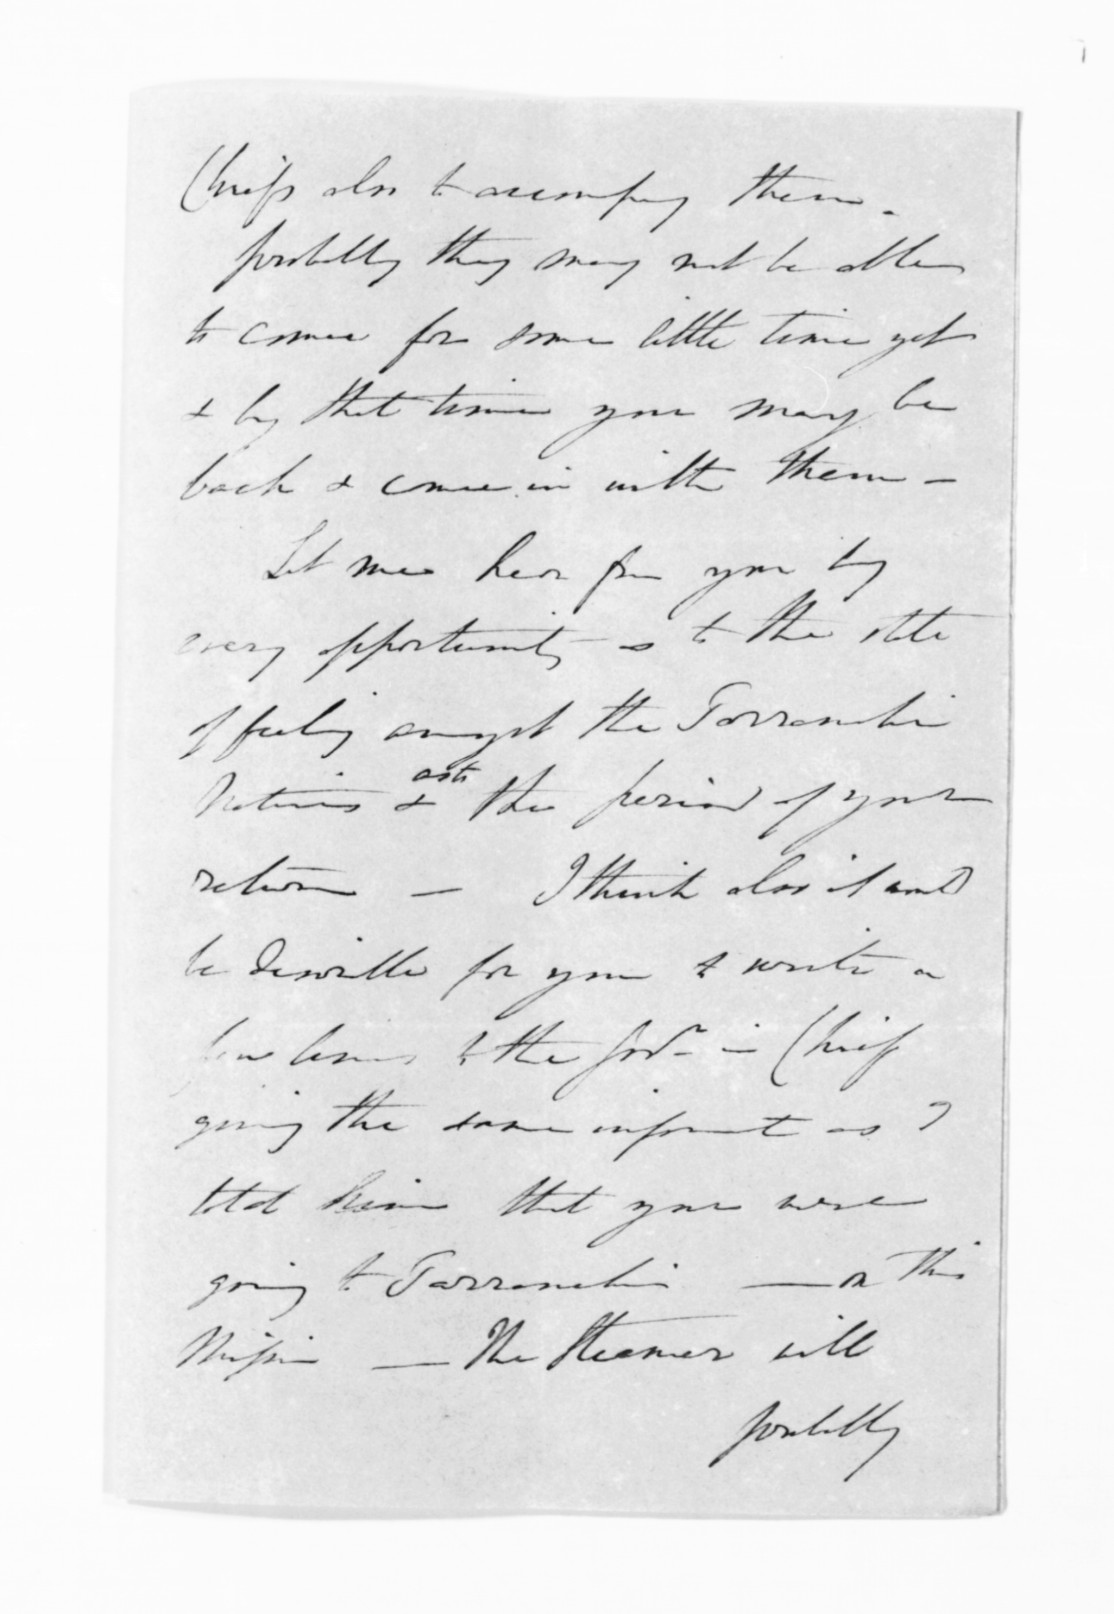 Chiefs also to accompany them.
probably they may not be able
to come for some little time yet
& by that time you may be
back & come in with them –
Let me hear from you by
every opportunity as to the state
of feeling amongst the Tarranaki
Natives & as to the period of your
return — I think also it would
be desirable for you to write a
few lines to the Govr in Chief
giving the same informt as I
told him that you were
going to Tarranaki — on this
Mission — The Steamer will
probably